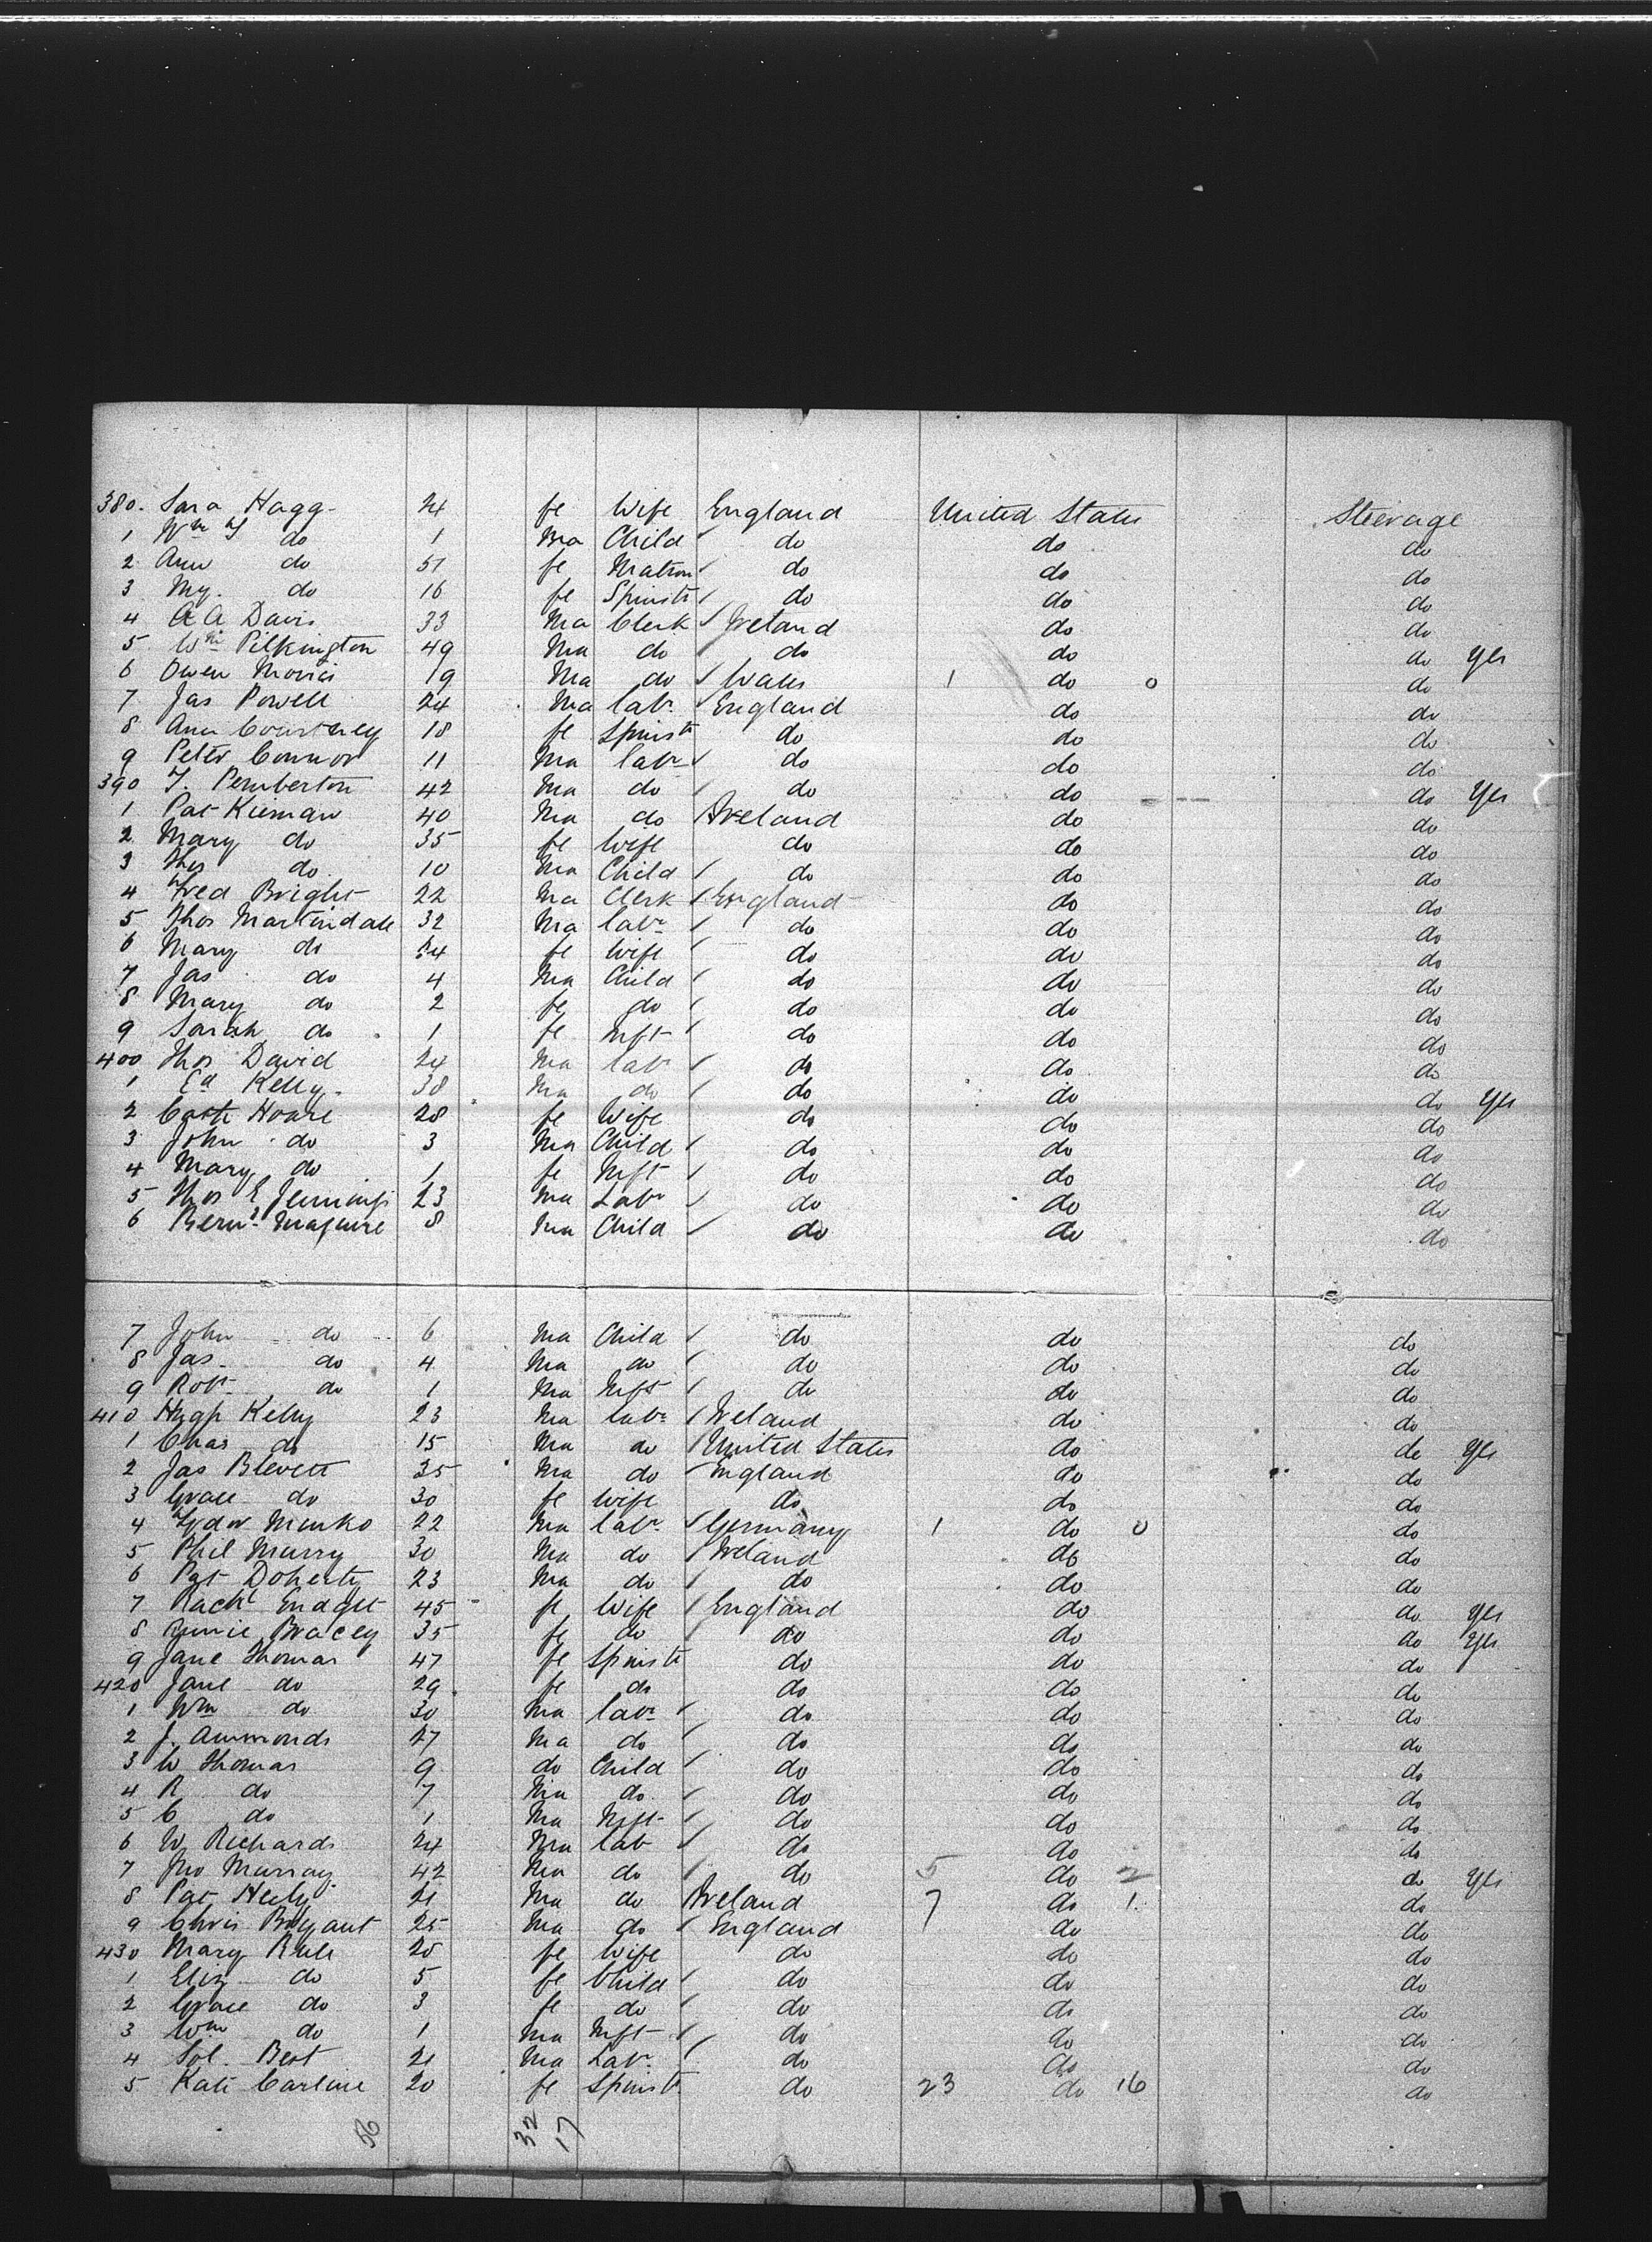 380. Sara Hagg 24 fe Wife England United States Steerage
1 Wm do 1 Ma Child do do do
2 Ann do 51 fe Matron do do do
3 My. do 16 fe Spinstr do do do
4 A A Davis 33 Ma Clerk Ireland do do
5 Wm Pilkington 49 Ma do do do do Yes
6 Owen Morris 19 Ma do Wales 1 do 0 do
7 Jas Powell 24 Ma labr England do do
8 Ann Courteney 18 fe Spinstr do do do
9 Peter Connor 11 Ma labr do do do
390 T. Pemberton 42 Ma do do do do Yes
1 Pat Kiernan 40 Ma do Ireland do do
2 Mary do 35 fe Wife do do do
3 Thos do 10 Ma Child do do do
4 Fred Bright 22 Ma Clerk England do do
5 Thos Martindale 32 Ma labr do do do
6 Mary do 34 fe Wife do do do
7 Jas do 4 Ma Child do do do
8 Mary do 2 fe do do do do
9 Sarah do 1 fe Inft do do do
400 Thos David 24 Ma labr do do do
1 Ed Kelly 38 Ma do do do do Yes
2 Cath Hoare 28 fe Wife do do do
3 John do 3 Ma Child do do do
4 Mary do 1 fe Inft do do do
5 Thos E Jennings 23 Ma Labr do do do
6 Bernd Maguire 8 Ma Child do do do
7 John do 6 Ma Child do do do
8 Jas do 4 Ma do do do do
9 Robt do 1 Ma Inft do do do
410 Hugh Kelly 23 Ma labr Ireland do do
1 Chas do 15 Ma do United States do do Yes
2 Jas Blevett 35 Ma do England do do
3 Grace do 30 fe Wife do do do
4 Minko 22 Ma labr Germany 1 do 0 do
5 Phil Murry 30 Ma do Ireland do do
6 Pat Doherty 23 Ma do do do do
7 Rachl 45 fe Wife England do do Yes
8 Bracey 35 fe do do do do Yes
9 Jane Thomas 47 fe Spinstr do do do
420 Jane do 29 fe do do do do
1 Wm do 30 Ma labr do do do
2 J. Ammonds 27 Ma do do do do
3 W Thomas 9 do Child do do do
4 R do 7 Ma do do do do
5 C do 1 Ma Inft do do do
6 W Richards 24 Ma labr do do do
7 Jno Murray 42 Ma do do 5 do 2 do Yes
8 Pat Hely 21 Ma do Ireland 7 do 1 do
9 Chris Bryant 25 Ma do England do do
430 Mary Rule 25 fe Wife do do do
1 Eliz do 5 fe Child do do do
2 Grace do 3 fe do do do do
3 Wm do 1 Ma Inft do do do
4 Sol. Best 21 Ma Labr do do do
5 Kate Carline 20 fe Spinstr do 23 do 16 do
56 32 17